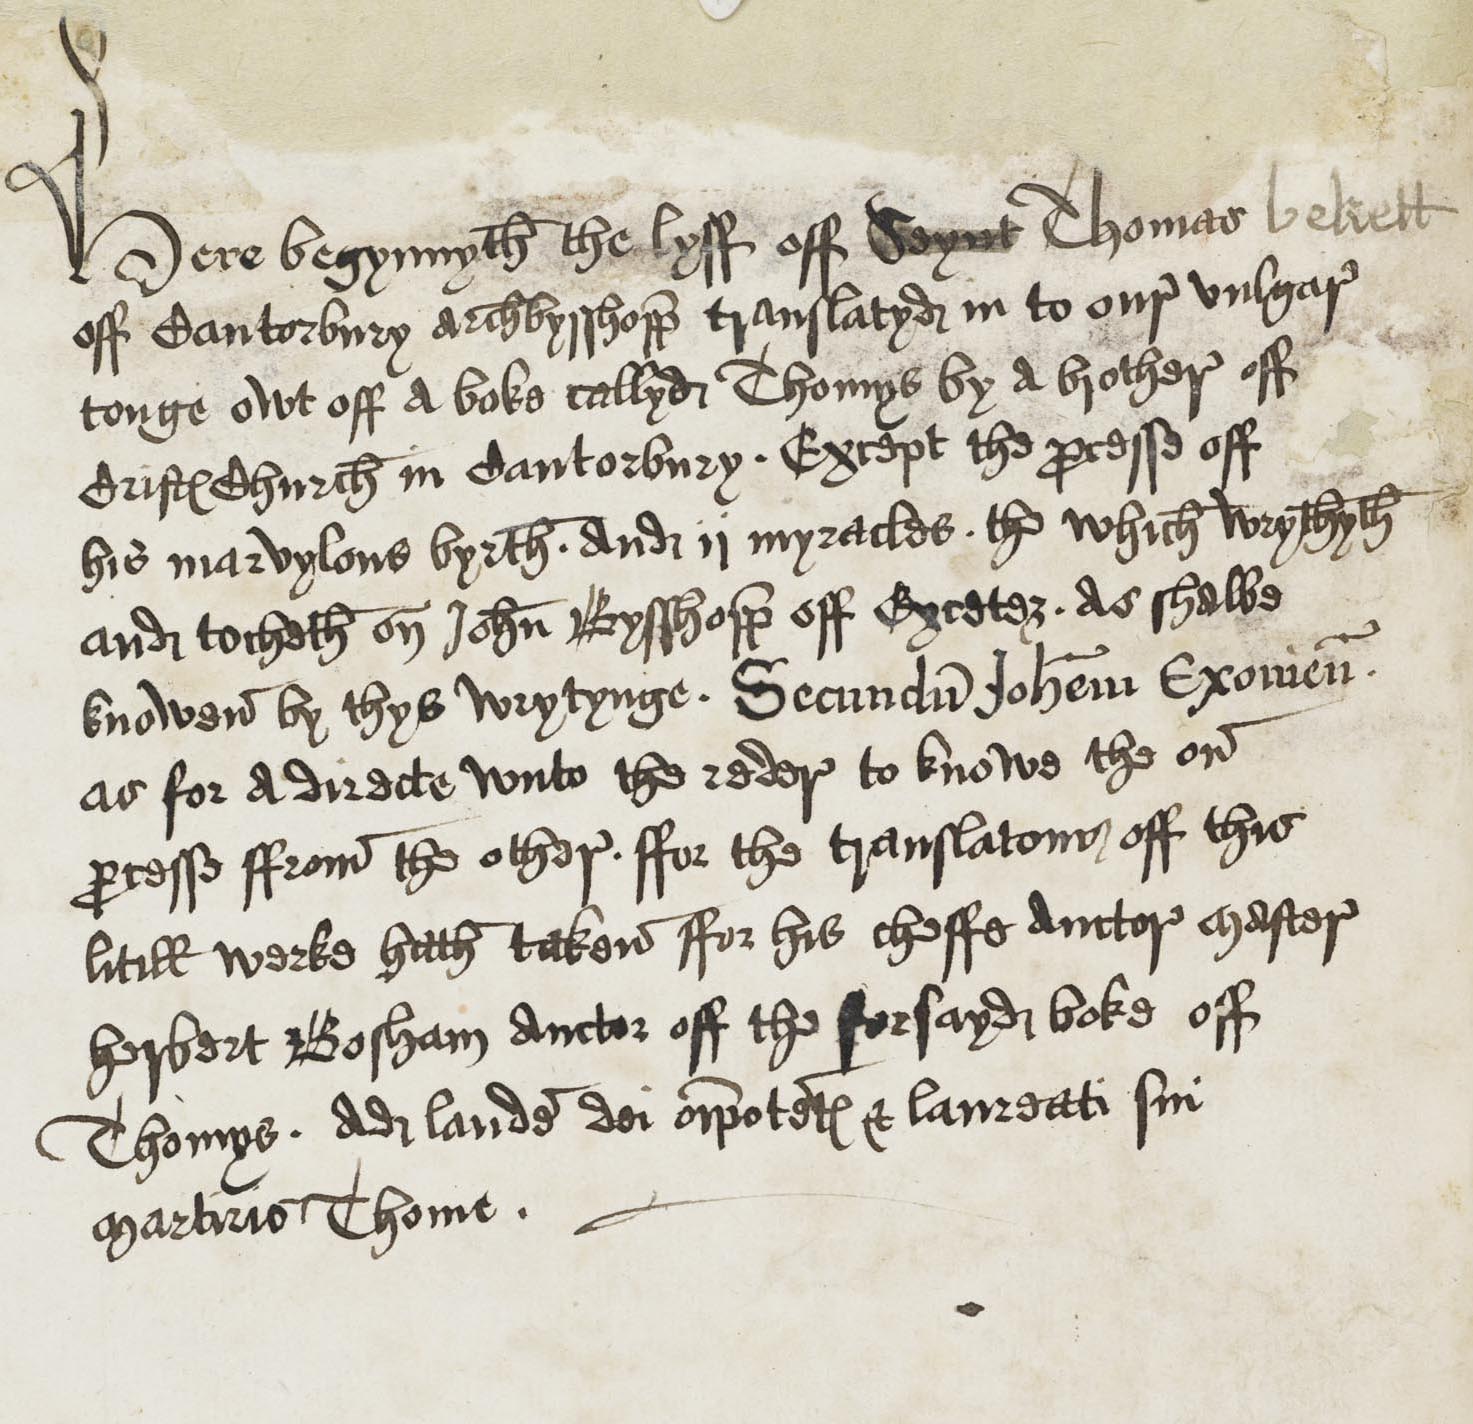 Here begynnyth the lyff off Seynt Thomas bekett
off Cantorbury archbysshopp translatyd in to our vulgar
tonge owt off a boke callyd Thomys by a brother off
Crist Church in Cantorbury . Except the ꝓcesse off
his marvylous byrth . And ij myracles . the which wrythyth
and tocheth on John Bysshopp off Exceter . As shalbe
knowen by thys wrytynge . Secundū Johēm Exonieñ .
as for a directe wnto the reder to knowe the on
ꝓcesse ffrom the other . ffor the translatour off this
litill werke hath taken ffor his cheffe auctor Master
herbert Bosham auctor off the forsayd boke off
Thomys . Ad laudē dei oīpotēt & laureati sui
Martiris Thome .